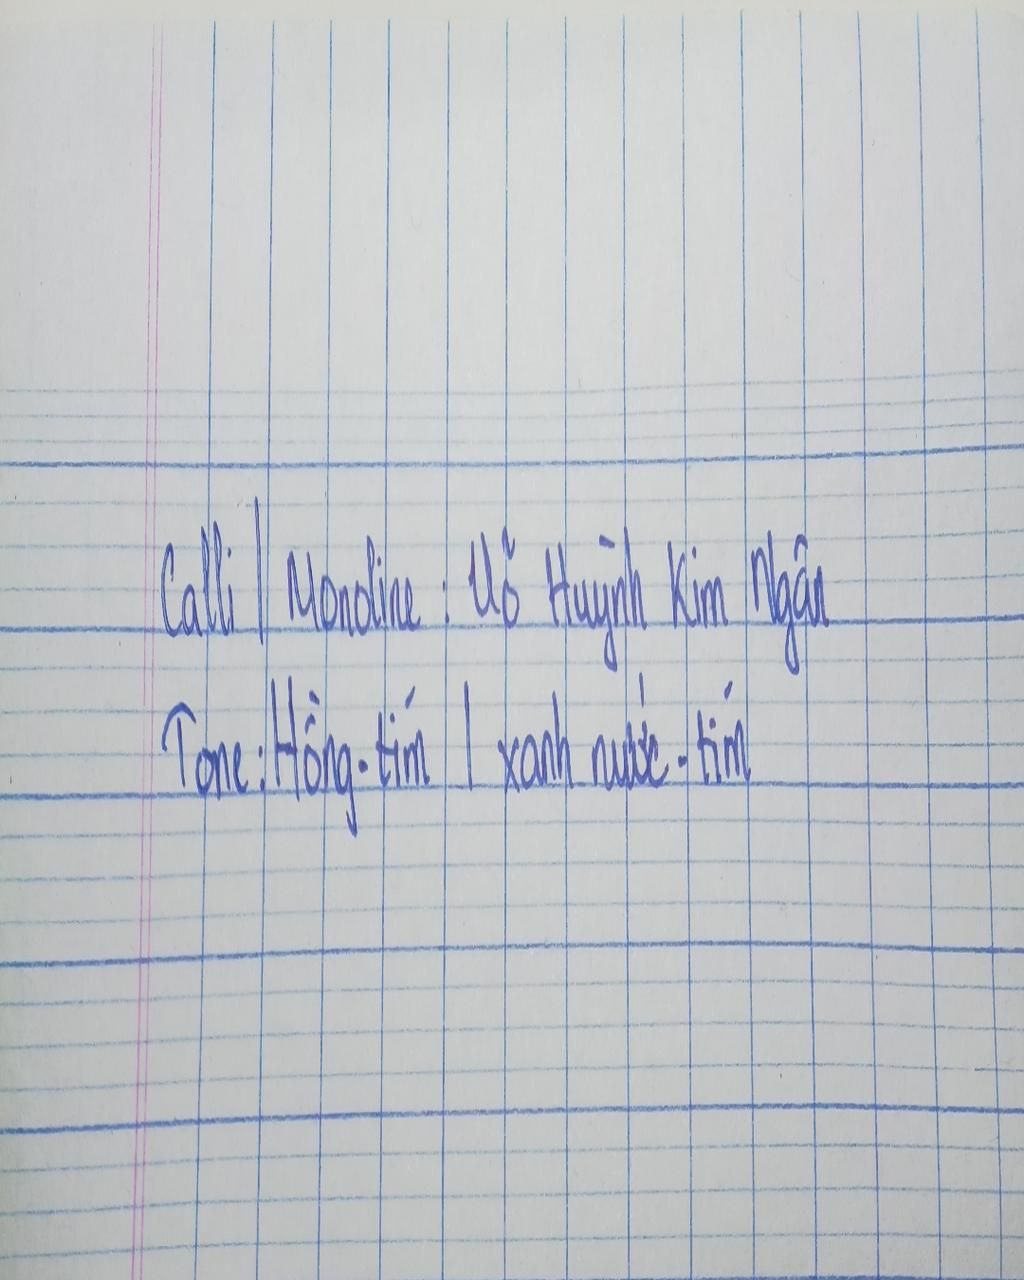 Calli | Monoline : Võ Huỳnh Kim Ngân
Tone : Hồng - tím | xanh nước - tím